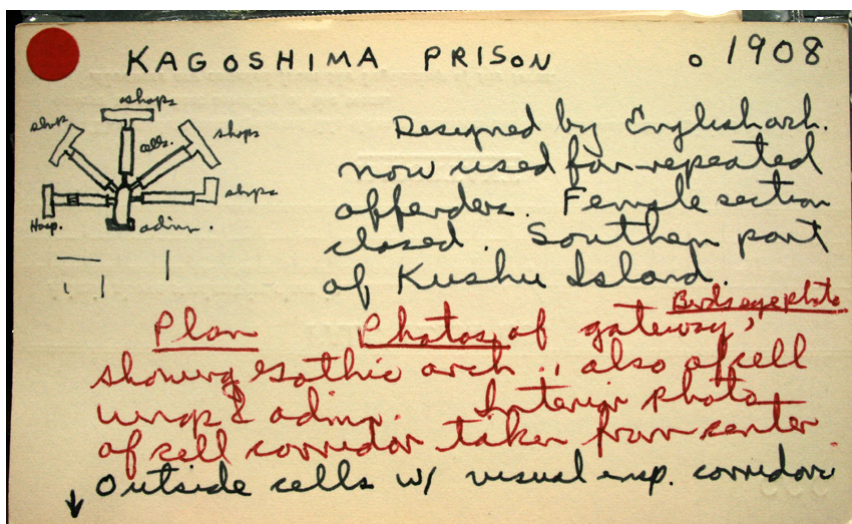 KAGOSHIMA PRISON o 1908
shops
shops
shops
cells.
shops
Hosp.
admin.
Designed by English arch.
now used for repeated
offenders. Female section
closed. Southern part
of Kushu Island.
Birdseye photo
Plan Photos of gateway,
showing Gothic arch, also of cell
wings & admin. Interior photo
of cell corridor taken from center.
↓ Outside cells w/ visual insp. corridors